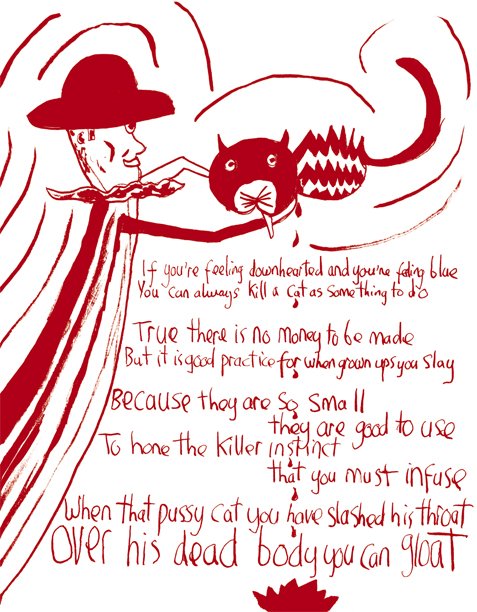 If you're feeling downhearted and you're feeling blue
You can always kill a cat as something to do
True there is no money to be made
But it is good practice for when grown ups you slay
Because they are so small
they are good to use
To hone the killer instinct
that you must infuse
When that pussy cat you have slashed his throat
Over his dead body you can gloat